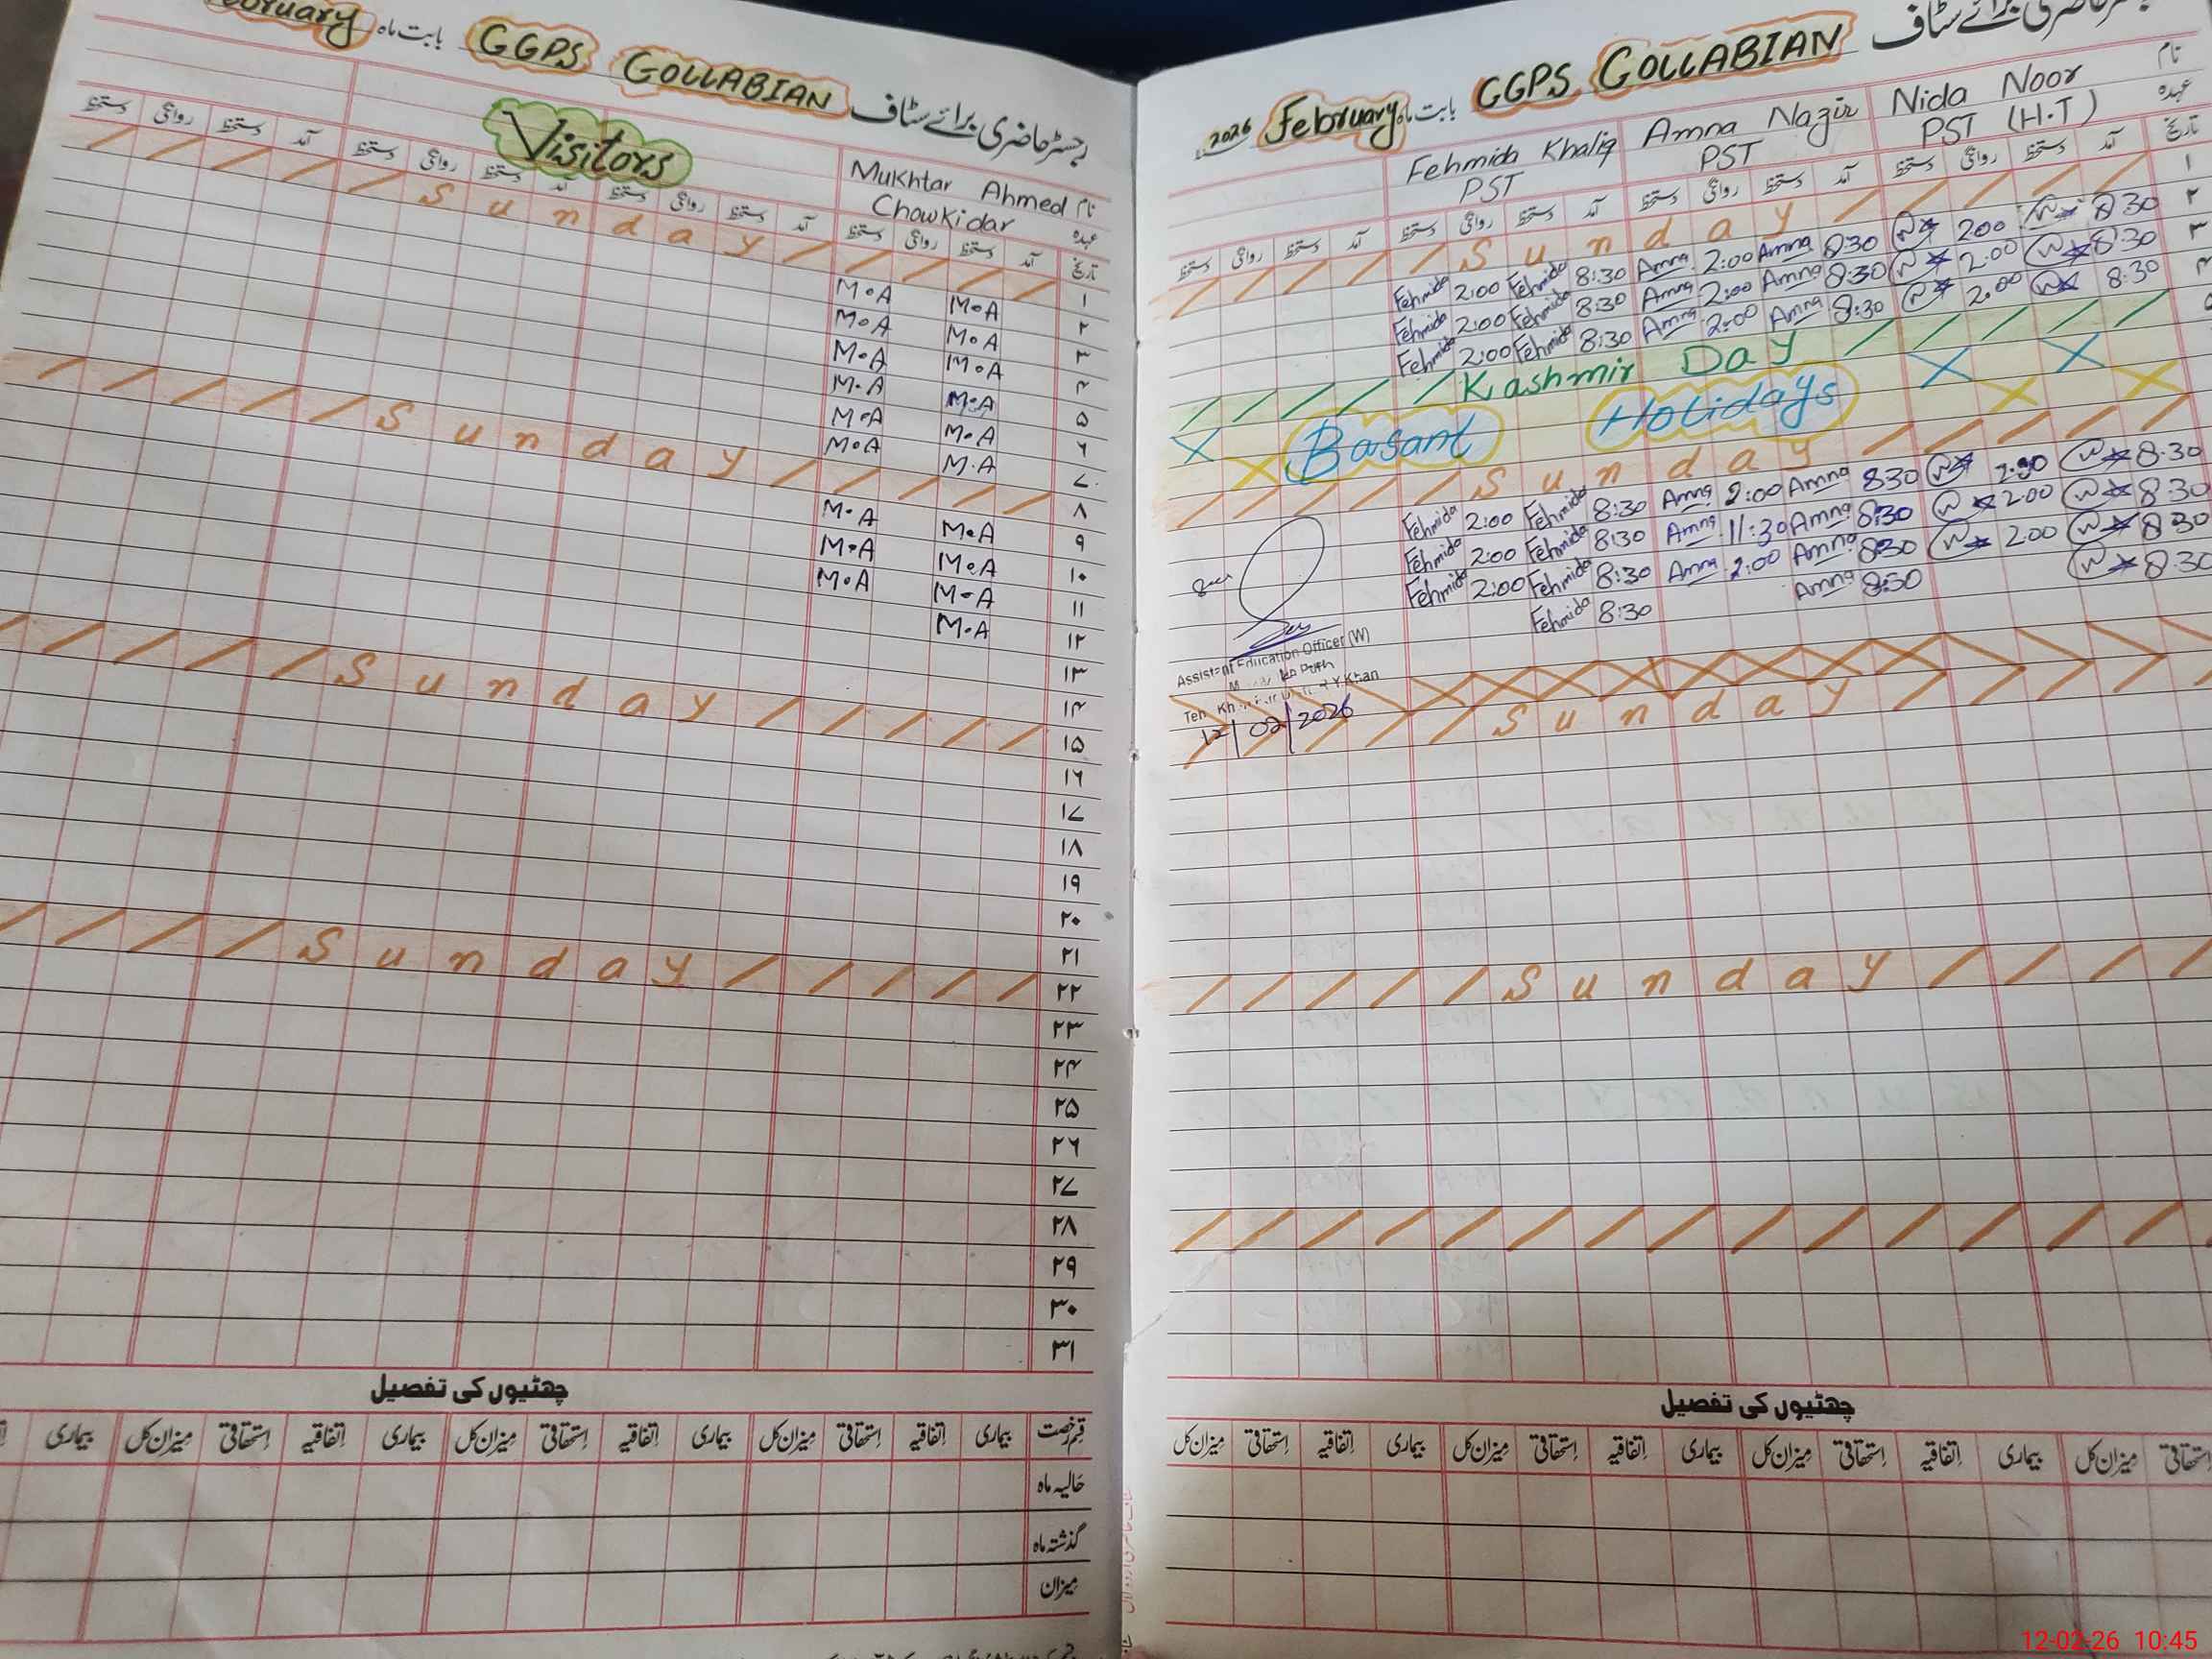 بابت ماہ GGPS GOLLABIAN رجسٹر حاضری برائے سٹاف
Visitors
Mukhtar Ahmed نام
Chowkidar عہدہ
دستخط روانگی دستخط آمد دستخط روانگی دستخط آمد دستخط روانگی دستخط آمد دستخط روانگی دستخط آمد تاریخ
Sunday ۱
M.A M.A ۲
M.A M.A ۳
M.A M.A ۴
M.A M.A ۵
M.A M.A ۶
M.A M.A ۷
Sunday ۸
M.A M.A ۹
M.A M.A ۱۰
M.A M.A ۱۱
M.A ۱۲
۱۳
۱۴
Sunday ۱۵
۱۶
۱۷
۱۸
۱۹
۲۰
۲۱
Sunday ۲۲
۲۳
۲۴
۲۵
۲۶
۲۷
۲۸
۲۹
۳۰
۳۱
چھٹیوں کی تفصیل
بیماری میزان کل استحقاقی اتفاقیہ بیماری میزان کل استحقاقی اتفاقیہ بیماری میزان کل استحقاقی اتفاقیہ بیماری قسم رخصت
حالیہ ماہ
گذشتہ ماہ
میزان
2026 February بابت ماہ GGPS GOLLABIAN رجسٹر حاضری برائے سٹاف
Fehmida Khaliq Amna Nazir Nida Noor نام
PST PST PST (H.T) عہدہ
دستخط روانگی دستخط آمد دستخط روانگی دستخط آمد دستخط روانگی دستخط آمد دستخط روانگی دستخط آمد تاریخ
Sunday ۱
Fehmida 2:00 Fehmida 8:30 Amna 2:00 Amna 8:30 200 8 30 ۲
Fehmida 2:00 Fehmida 8:30 Amna 2:00 Amna 8:30 2:00 8:30 ۳
Fehmida 2:00 Fehmida 8:30 Amna 2:00 Amna 8:30 2:00 8:30 ۴
Kashmir Day ۵
Basant Holidays
Sunday
Fehmida 2:00 Fehmida 8:30 Amna 2:00 Amna 8:30 8:30
Fehmida 2:00 Fehmida 8:30 Amna 11:30 Amna 8:30 2:00 8:30
Fehmida 2:00 Fehmida 8:30 Amna 2:00 Amna 8:30 2:00 8:30
Fehmida 8:30 Amna 8:30 8:30
Assistant Education Officer (W)
R Y Khan
12/02/2026
Sunday
Sunday
چھٹیوں کی تفصیل
میزان کل استحقاقی اتفاقیہ بیماری میزان کل استحقاقی اتفاقیہ بیماری میزان کل استحقاقی اتفاقیہ بیماری میزان کل استحقاقی
12-02-26 10:45